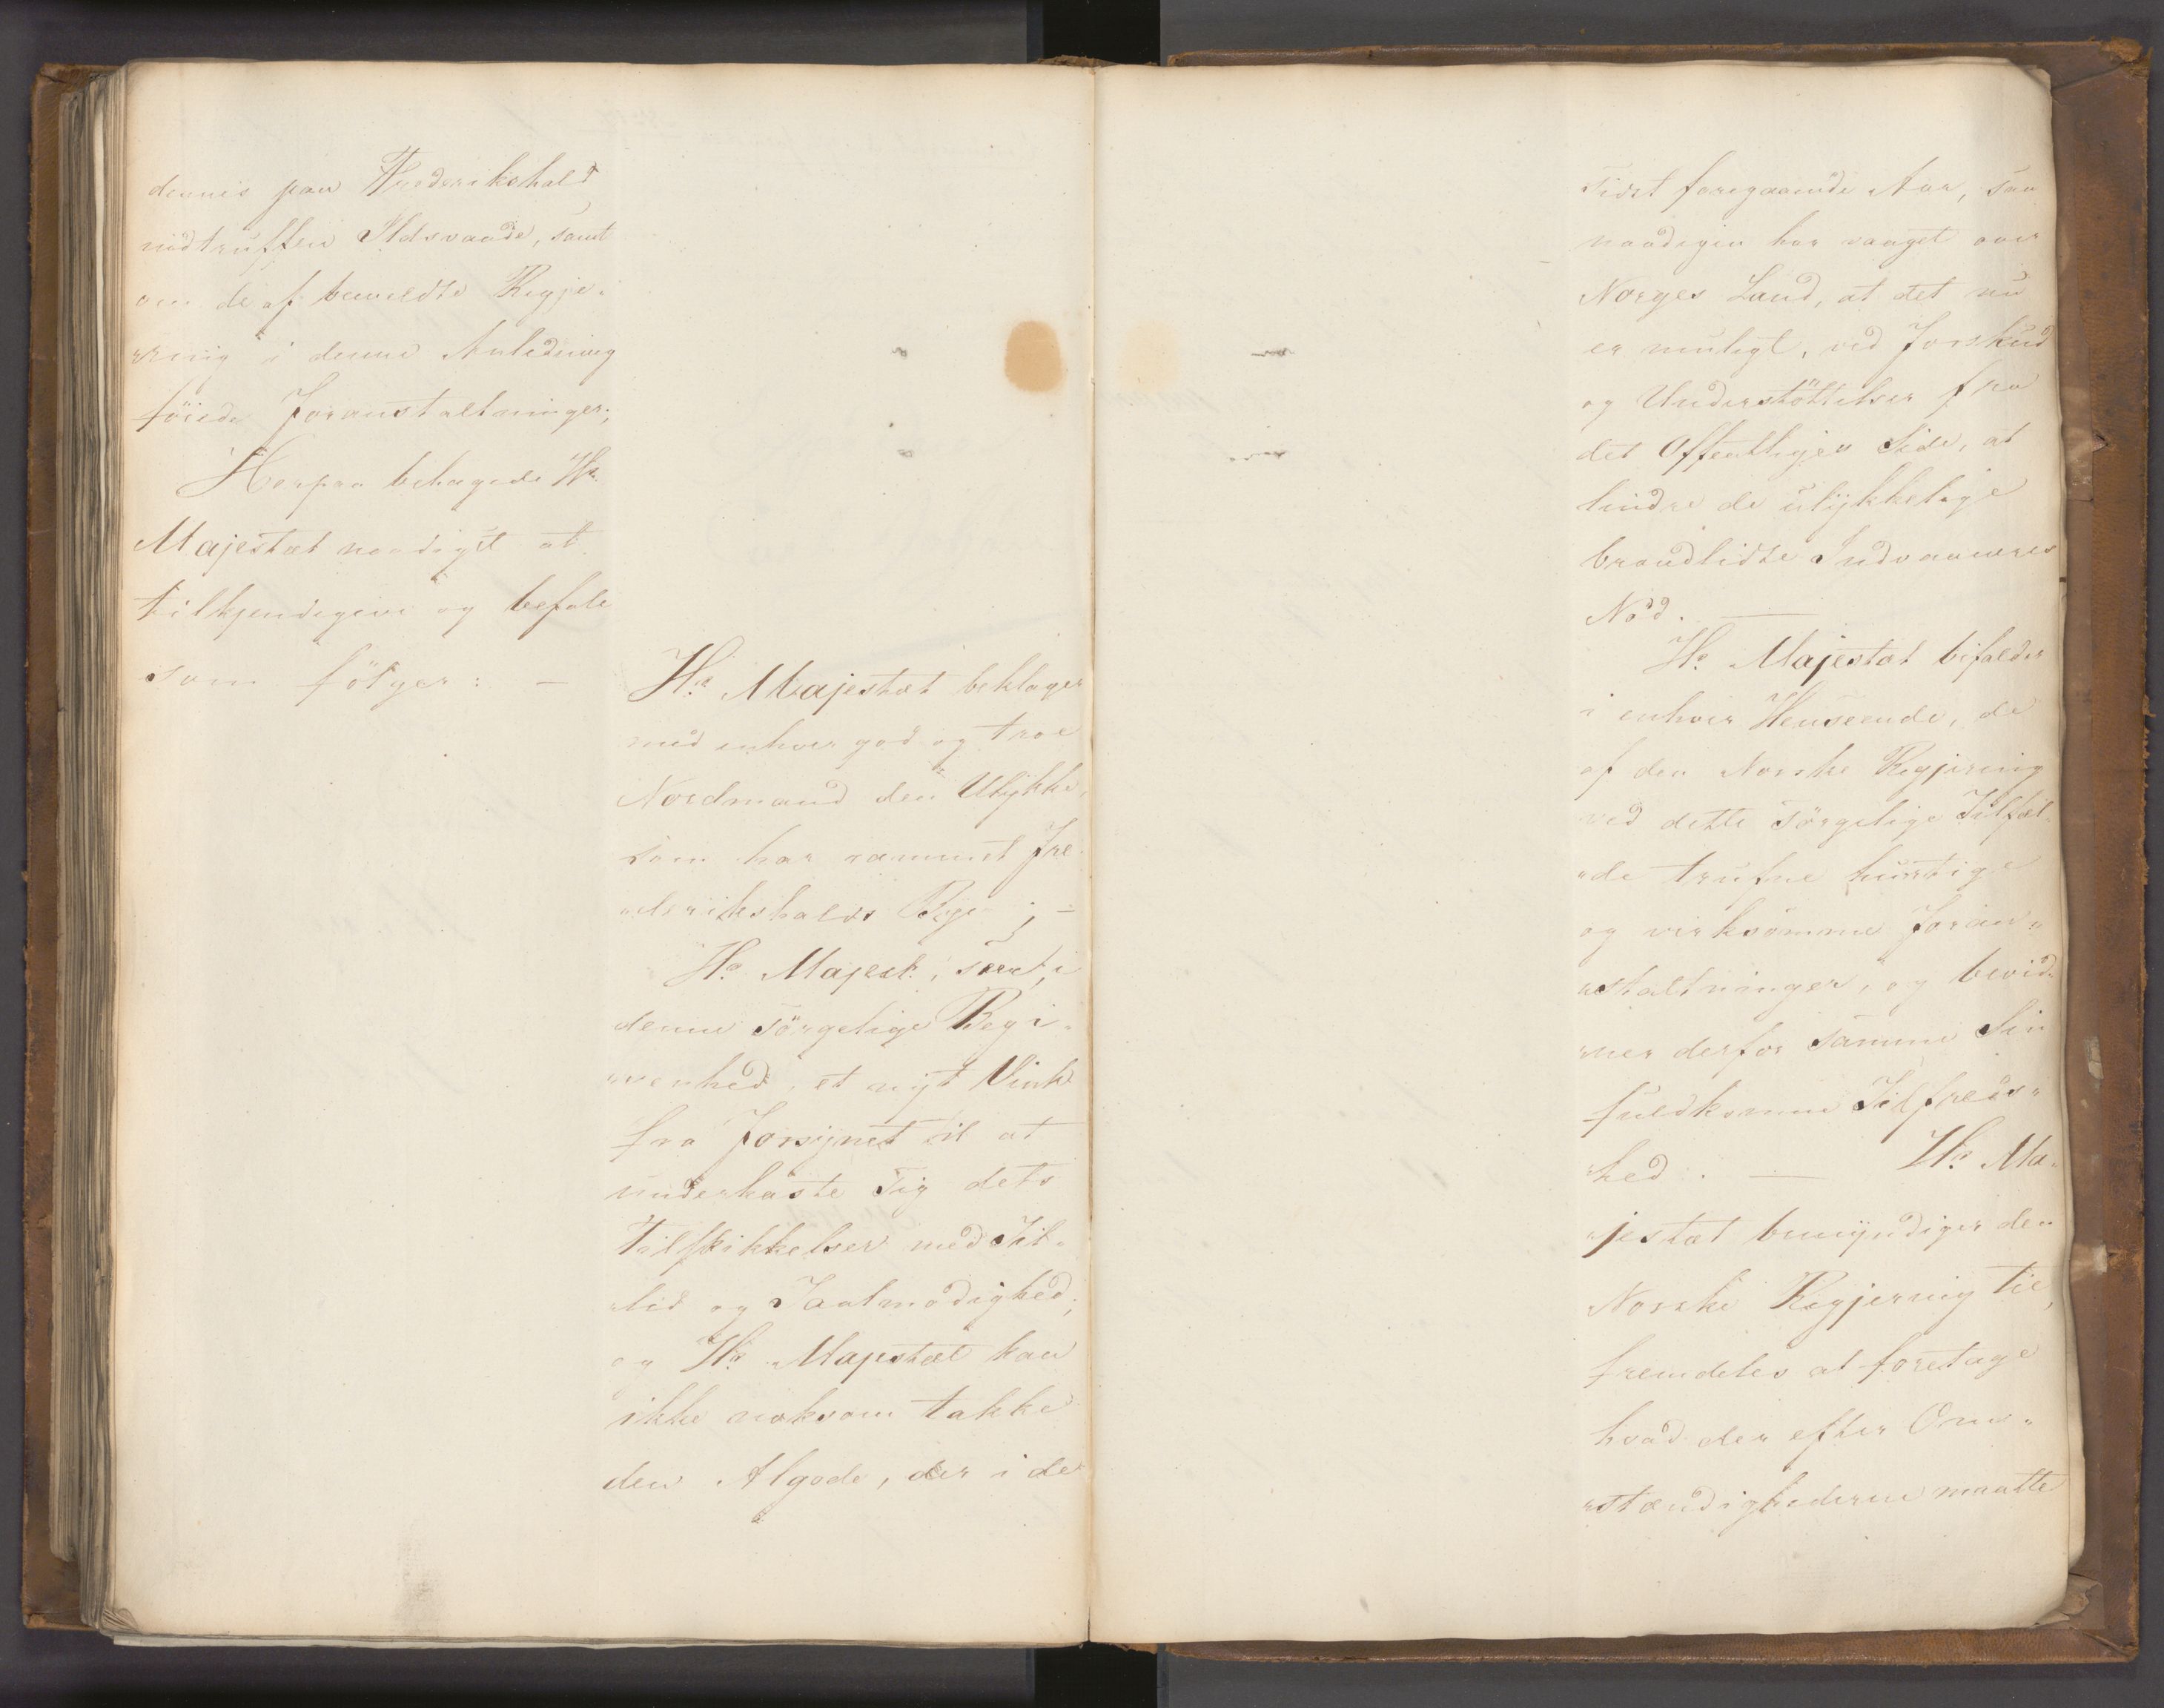 dennis paa Frederikshald
indtruffen Ildsvaade, samt
om de af bemeldte Regje-
ring i denne Anledning
föiede Foranstaltninger;
Herpaa behagede Hs.
Majestæt naadigst at
tilkjendegive og befale
som fölger: —
Hs Majestæt beklager
med enhver god og troe
Nordmand den Ulykke,
som har rammet Fre-
"derikshalds Bye; —
Hs. Majest:, seet, i
denne sörgelige Begi-
"venhed, et nyt Vink
fra Forsynet til at
underkaste sig dets
Tilskikkelser med Til-
"lid og Taalmodighed;
og Hs. Majestæt kan
ikke noksom takke
den Algode, der i de
sidst foregaaende Aar, saa
naadigen har vaaget over
Norges Land, at det nu
er muligt, ved Forskud
og Understöttelser fra
det Offentliges Side, at
lindre de ulykkelige
brandlidte Indvaaneres
Nöd. —
Hs. Majestæt bifalder
i enhver Henseende, de
af den Norske Regjering
ved dette sörgelige Tilfæl-
"de trufne hurtige
og virksomme Foran-
"staltninger, og bevid-
"ner derfor samme Sin
fuldkomne Tilfreds-
"hed. — Hs. Ma-
"jestæt bemyndiger den
Norske Regjering til,
fremdeles at foretage
hvad der efter Om-
"stændighederne maatte